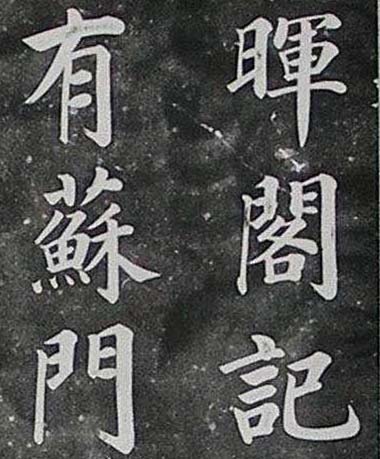 暉閣記
有蘇門